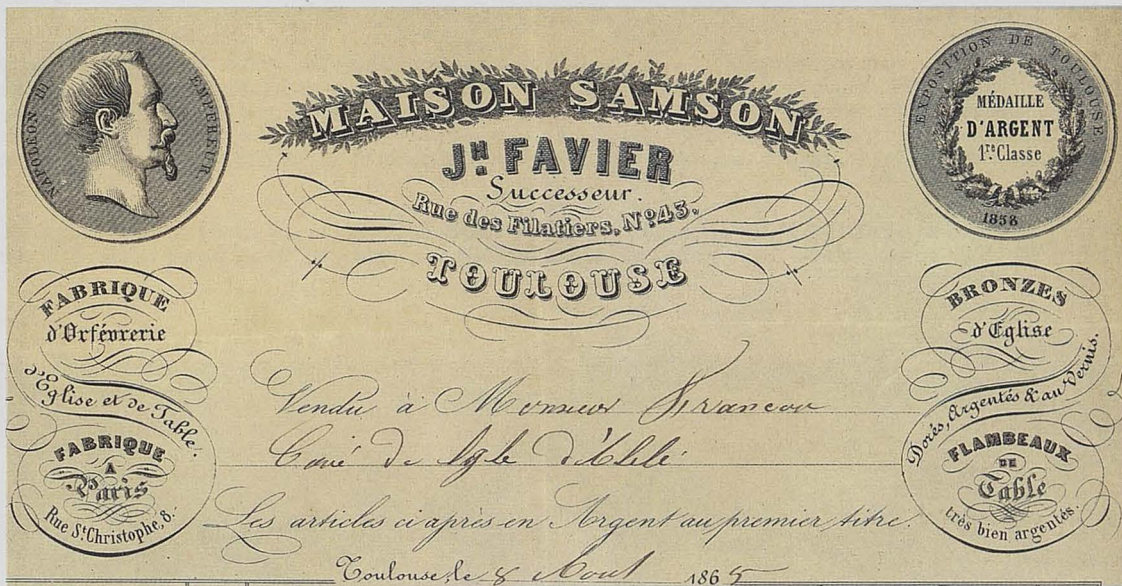 NAPOLEON III EMPEREUR
MAISON SAMSON
JH FAVIER
Successeur.
Rue des Filatiers, No 43.
TOULOUSE
EXPOSITION DE TOULOUSE
MÉDAILLE
D'ARGENT
1re Classe
1858
FABRIQUE
d'Orfévrerie
d'Eglise et de Table.
FABRIQUE
A
Paris
Rue St Christophe, 8.
BRONZES
d'Eglise
Dorés, Argentés & au Vernis.
FLAMBEAUX
DE
Table
très bien argentés.
Vendu à Monsieur
Curé de
Les articles ci après en Argent au premier titre.
Toulouse, le 8 Aout 1865